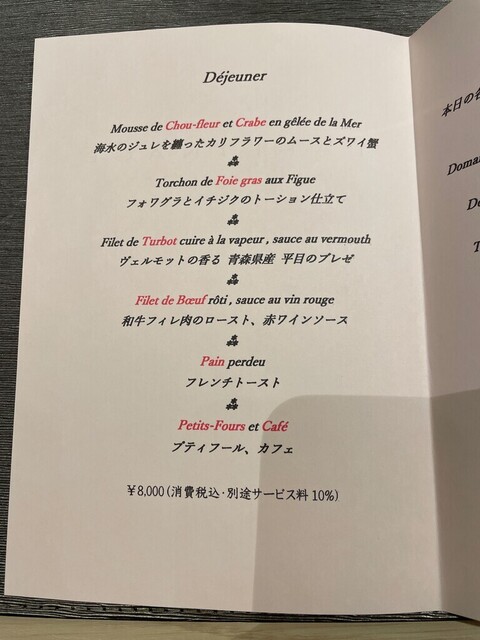 Déjeuner
Mousse de Chou-fleur et Crabe en gêlée de la Mer
海水のジュレを纏ったカリフラワーのムースとズワイ蟹
Torchon de Foie gras aux Figue
フォワグラとイチジクのトーション仕立て
Filet de Turbot cuire à la vapeur , sauce au vermouth
ヴェルモットの香る 青森県産 平目のブレゼ
Filet de Bœuf rôti , sauce au vin rouge
和牛フィレ肉のロースト、赤ワインソース
Pain perdeu
フレンチトースト
Petits-Fours et Café
プティフール、カフェ
￥8,000 (消費税込・別途サービス料 10%)
本日の